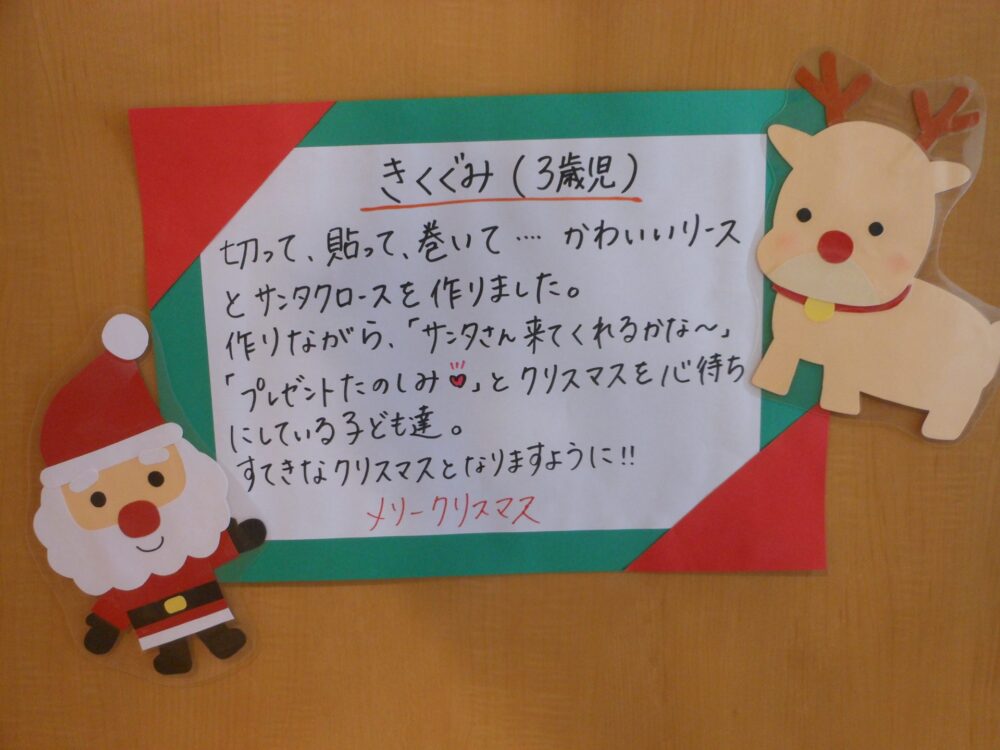 きくぐみ(3歳児)
切って、貼って、巻いて…. かわいいリース
とサンタクロースを作りました。
作りながら、「サンタさん来てくれるかな〜」
「プレゼントたのしみ♥」とクリスマスを心待ち
にしている子ども達。
すてきなクリスマスとなりますように!!
メリークリスマス